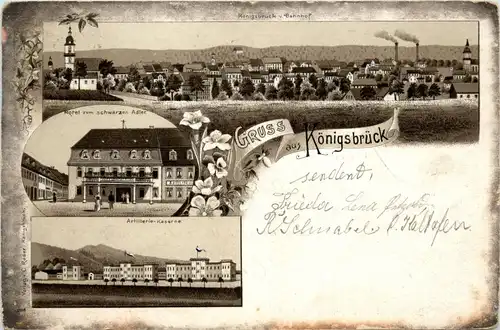 Königsbrück v. Bahnhof.
Hotel zum schwarzen Adler.
Gruss
aus Königsbrück
sendent
Frieda Lena
R. Schnabel
Artillerie-Kaserne